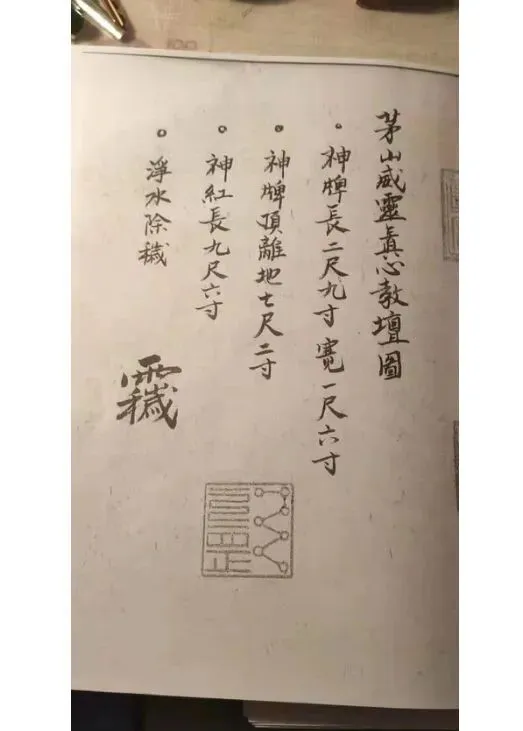 茅山威靈眞心教壇圖
神牌長二尺九寸寬一尺六寸
神牌頂離地七尺二寸
神紅長九尺六寸
淨水除穢